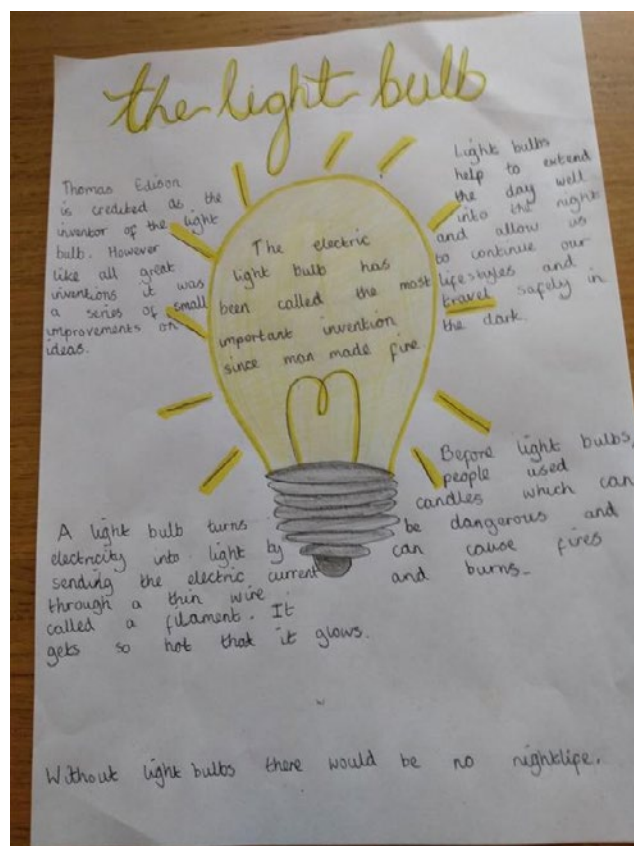 the light bulb
Thomas Edison
is credited as the
inventor of the light
bulb. However
like all great
inventions it was
a series of small
improvements on
ideas.
The electric
light bulb has
been called the most
important invention
since man made fire
Light bulbs
help to extend
the day well
into the night
and allow us
to continue our
lifestyles and
travel safely in
the dark.
Before light bulbs,
people used
candles which can
be dangerous and
can cause fires
and burns.
A light bulb turns
electricity into light by
sending the electric current
through a thin wire
called a filament. It
gets so hot that it glows.
Without light bulbs there would be no nightlife.